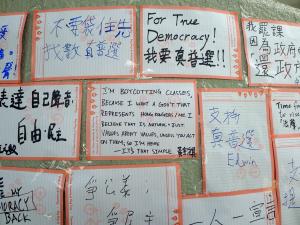 不要袋住先
我要真普選
For True
Democracy!
我要真普選!!
我罷課
因為
政府
還
政府
表達自己聲音
自由·民主
I'M BOYCOTTING CLASSES,
BECAUSE I WANT A GOV'T THAT
REPRESENTS HONG KONGERS/ME. I
BELIEVE THAT IS
JUST
VALUES AREN'T VALUES, UNLESS YOU ACT
ON THEM, SO I'M HERE
—IT'S THAT SIMPLE.
支持
真普選
Edwin
Time
to rise
MY
DEMOCRACY
BACK
爭公義
爭民主
一人一宣言